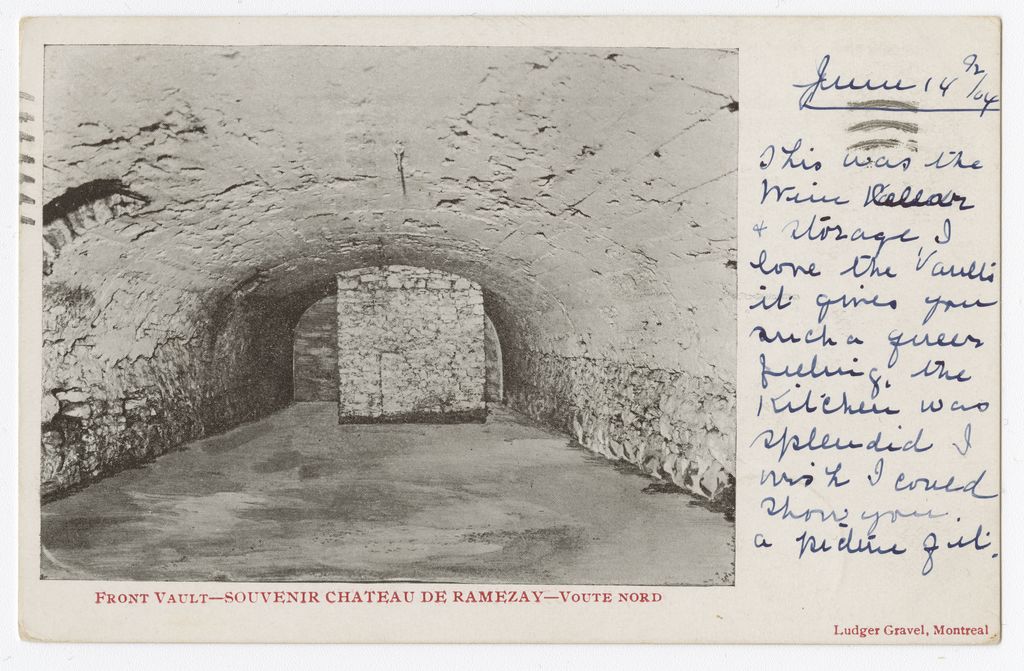 June 14
This was the
Wine Kellar
+ storage I
love the Vaults
it gives you
such a queer
feeling, the
Kitchen was
splendid I
wish I could
show you
a picture of it.
FRONT VAULT—SOUVENIR CHATEAU DE RAMEZAY—VOUTE NORD
Ludger Gravel, Montreal